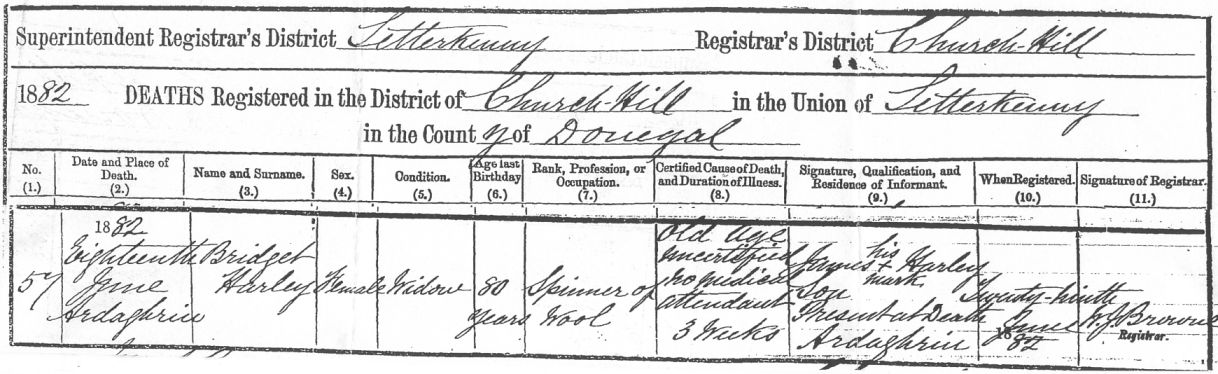 Superintendent Registrar's District Letterkenny Registrar's District Church-Hill
1882 DEATHS Registered in the District of Church-Hill in the Union of Letterkenny
in the County of Donegal
No. (1.) Date and Place of Death. (2.) Name and Surname. (3.) Sex. (4.) Condition. (5.) Age last Birthday (6.) Rank, Profession, or Occupation. (7.) Certified Cause of Death, and Duration of Illness. (8.) Signature, Qualification, and Residence of Informant. (9.) When Registered. (10.) Signature of Registrar. (11.)
57
1882
Eighteenth
June
Ardaghrin
Bridget
Harley
Female
Widow
80
years
Spinner of
Wool
Old Age
uncertified
no medical
attendant
3 Weeks
his
James + Harley
mark
Son
Present at Death
Ardaghrin
Twenty-ninth
June
1882
W.J. Browne
Registrar.